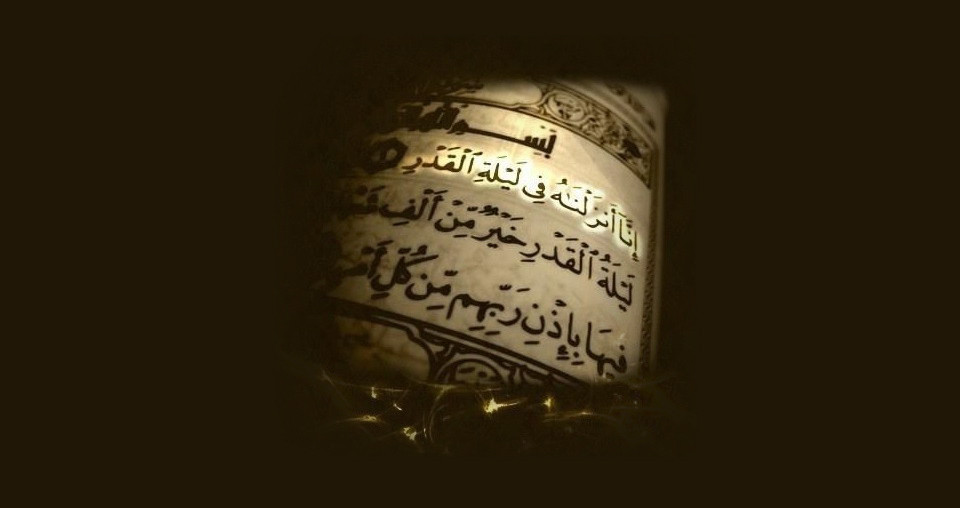 بِسْمِ ٱللَّهِ
إِنَّآ أَنزَلْنَٰهُ فِى لَيْلَةِ ٱلْقَدْرِ
لَيْلَةُ ٱلْقَدْرِ خَيْرٌ مِّنْ أَلْفِ
فِيهَا بِإِذْنِ رَبِّهِم مِّن كُلِّ أَمْرٍ